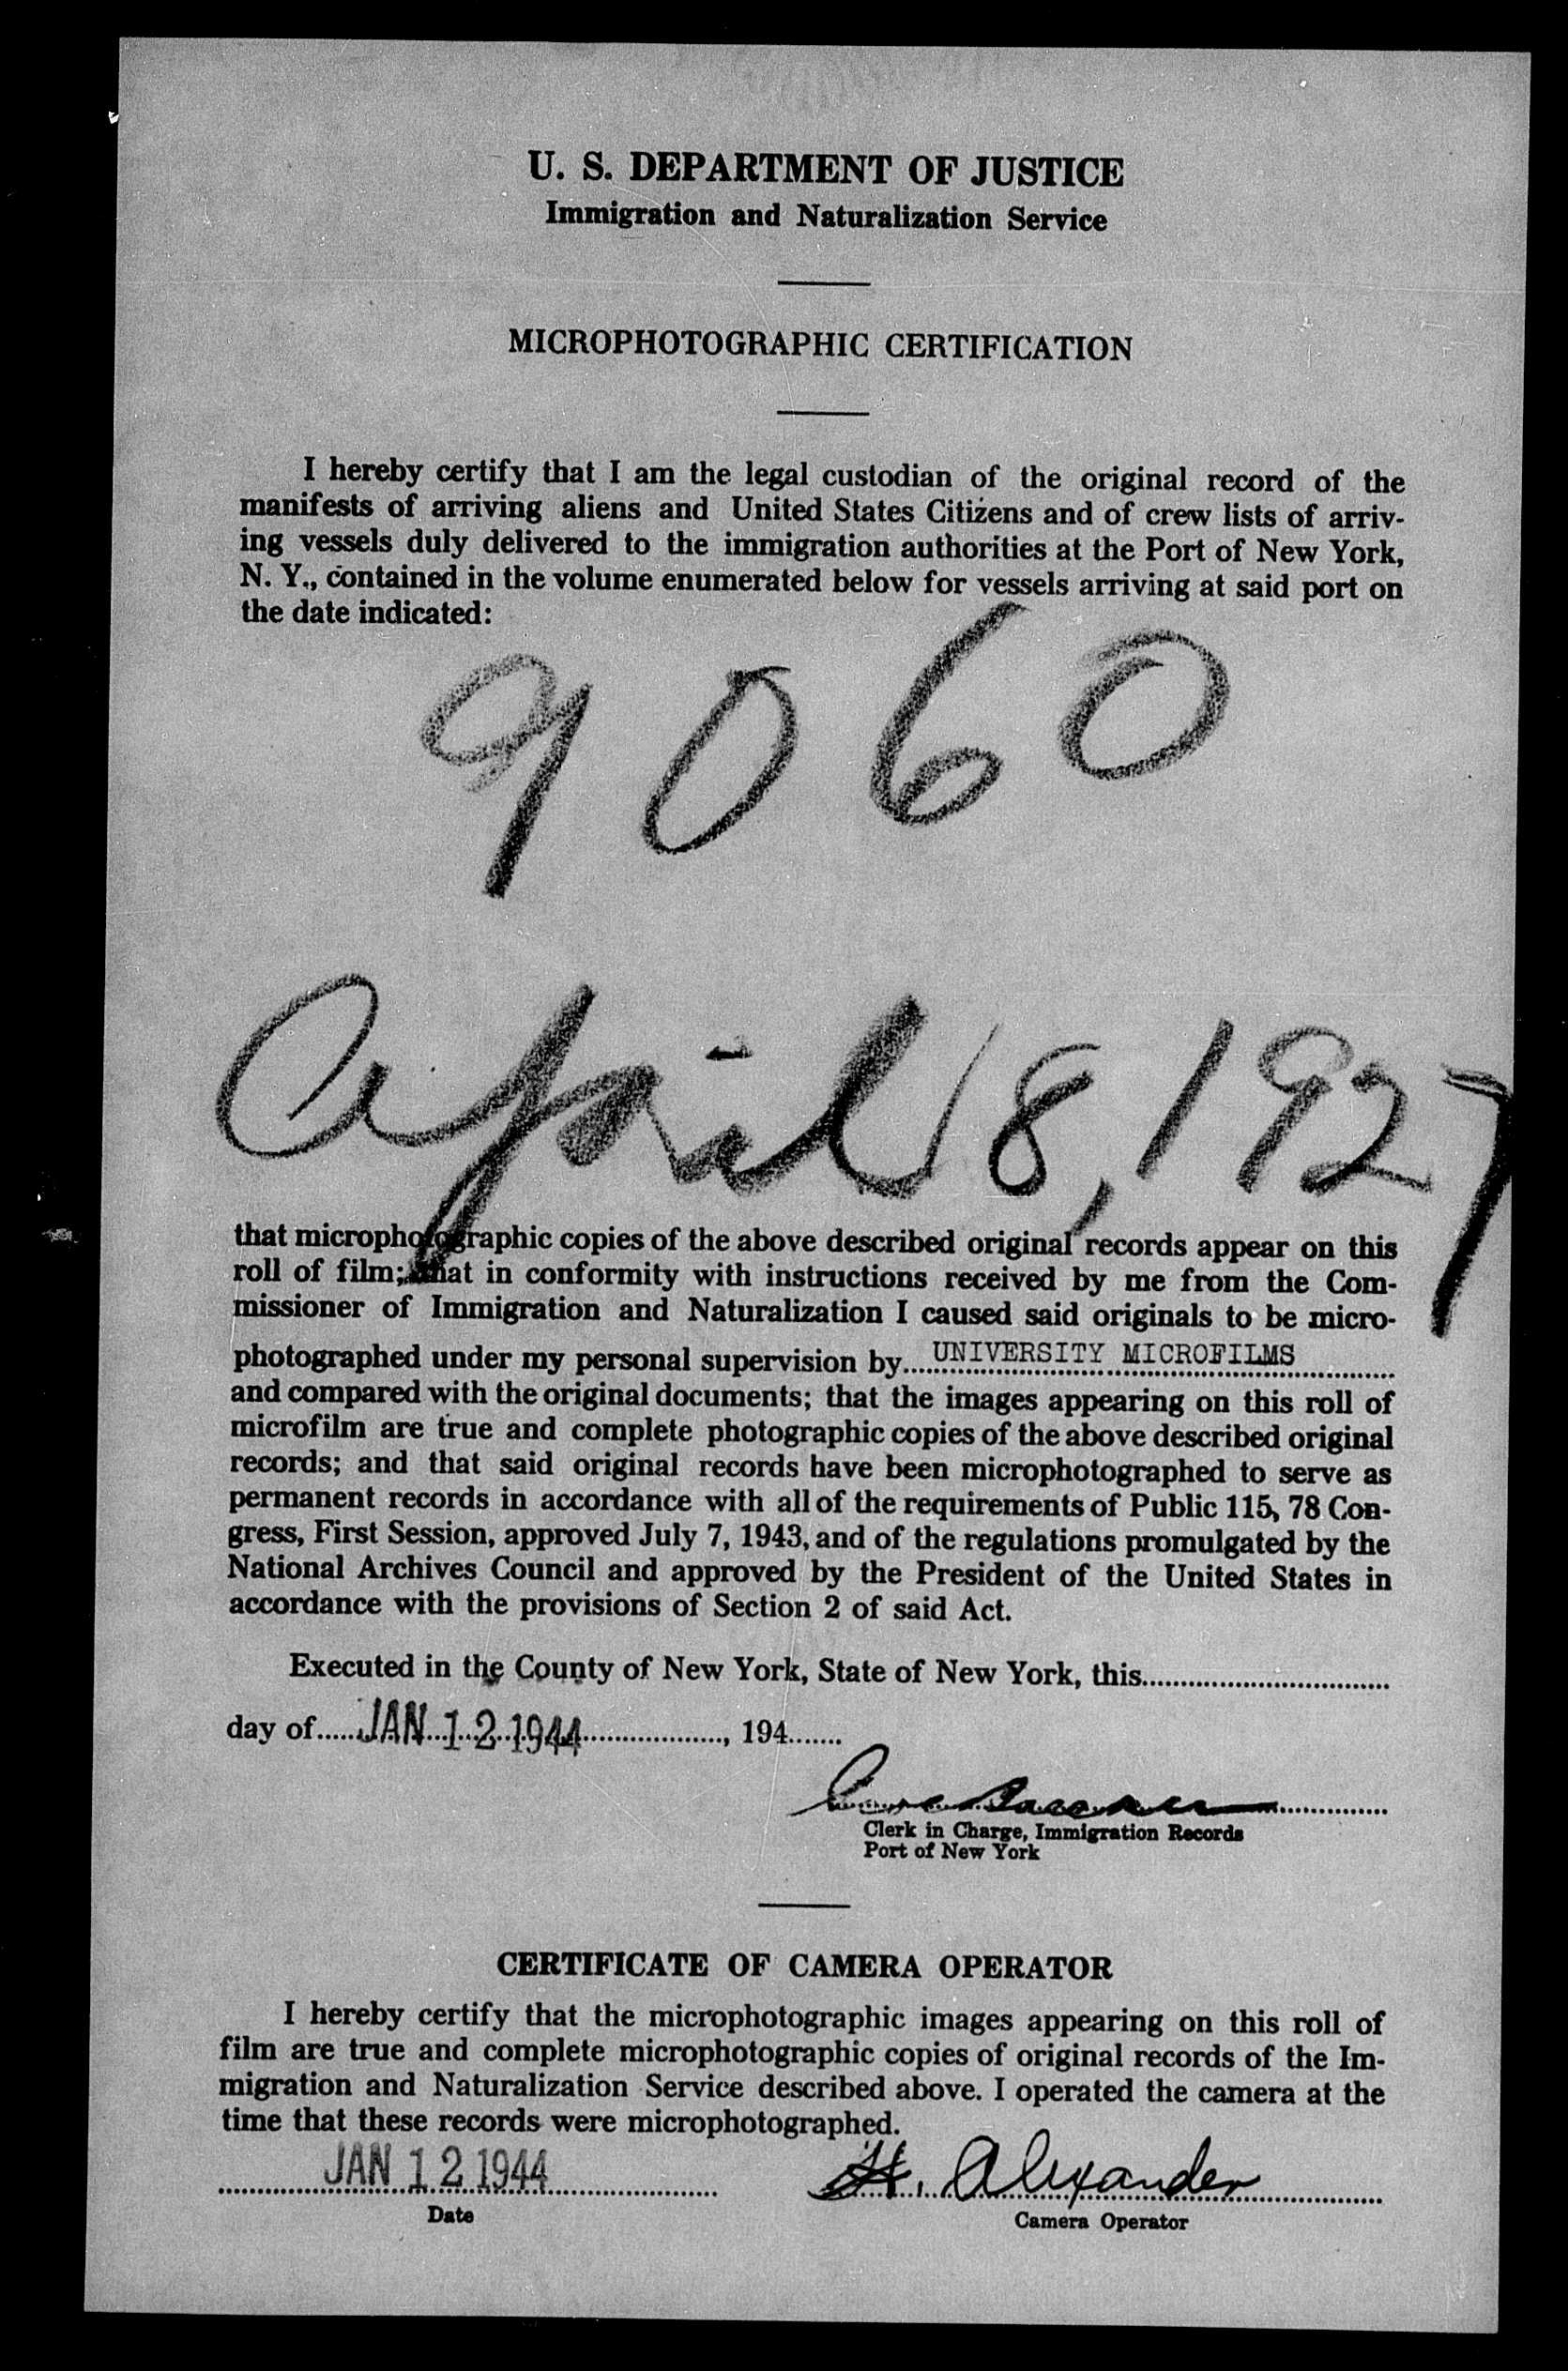 U. S. DEPARTMENT OF JUSTICE
Immigration and Naturalization Service
MICROPHOTOGRAPHIC CERTIFICATION
I hereby certify that I am the legal custodian of the original record of the
manifests of arriving aliens and United States Citizens and of crew lists of arriv-
ing vessels duly delivered to the immigration authorities at the Port of New York,
N. Y., contained in the volume enumerated below for vessels arriving at said port on
the date indicated:
9060
April 18, 1927
that microphotographic copies of the above described original records appear on this
roll of film; that in conformity with instructions received by me from the Com-
missioner of Immigration and Naturalization I caused said originals to be micro-
photographed under my personal supervision by UNIVERSITY MICROFILMS
and compared with the original documents; that the images appearing on this roll of
microfilm are true and complete photographic copies of the above described original
records; and that said original records have been microphotographed to serve as
permanent records in accordance with all of the requirements of Public 115, 78 Con-
gress, First Session, approved July 7, 1943, and of the regulations promulgated by the
National Archives Council and approved by the President of the United States in
accordance with the provisions of Section 2 of said Act.
Executed in the County of New York, State of New York, this
day of JAN 12 1944, 194
Clerk in Charge, Immigration Records
Port of New York
CERTIFICATE OF CAMERA OPERATOR
I hereby certify that the microphotographic images appearing on this roll of
film are true and complete microphotographic copies of original records of the Im-
migration and Naturalization Service described above. I operated the camera at the
time that these records were microphotographed.
JAN 12 1944 H. Alexander
Date Camera Operator